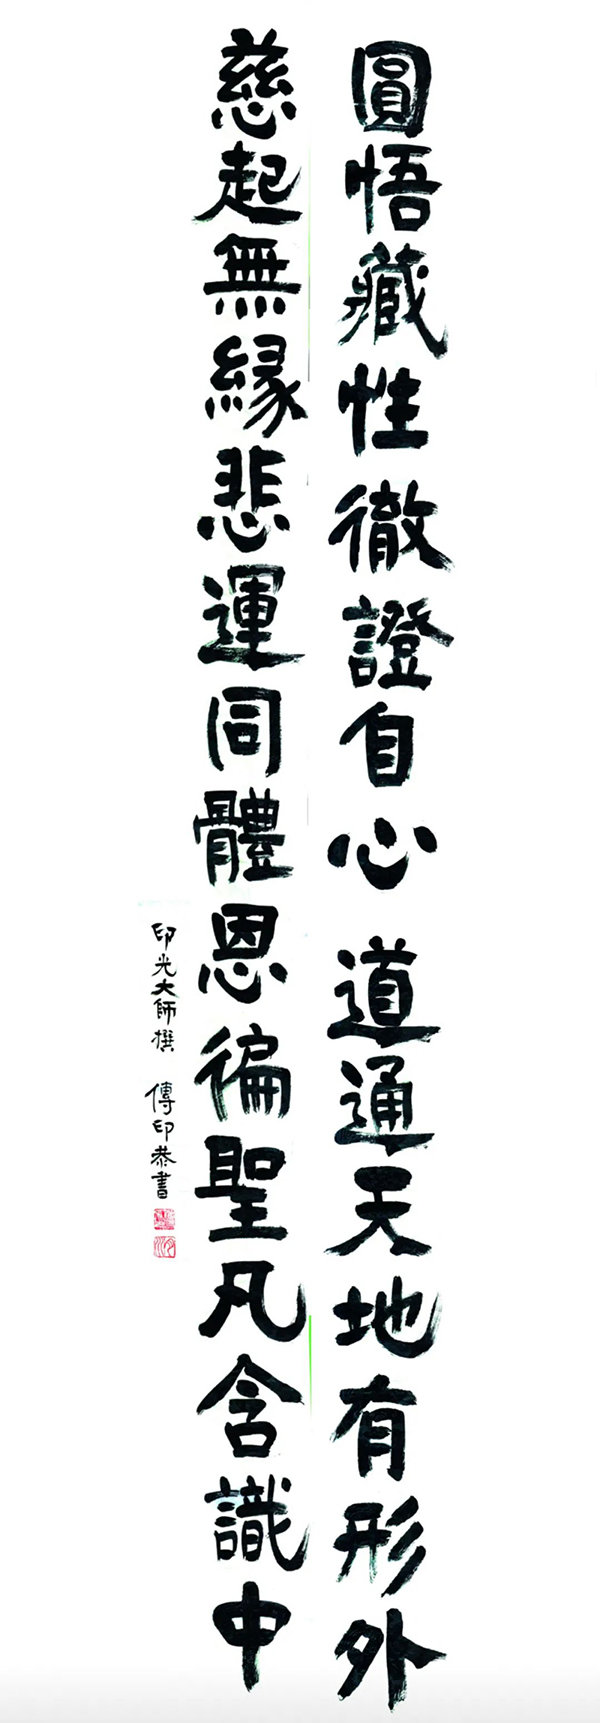 圓悟藏性徹證自心 道通天地有形外
慈起無緣悲運同體恩徧聖凡含識中
印光大師撰 傳印恭書